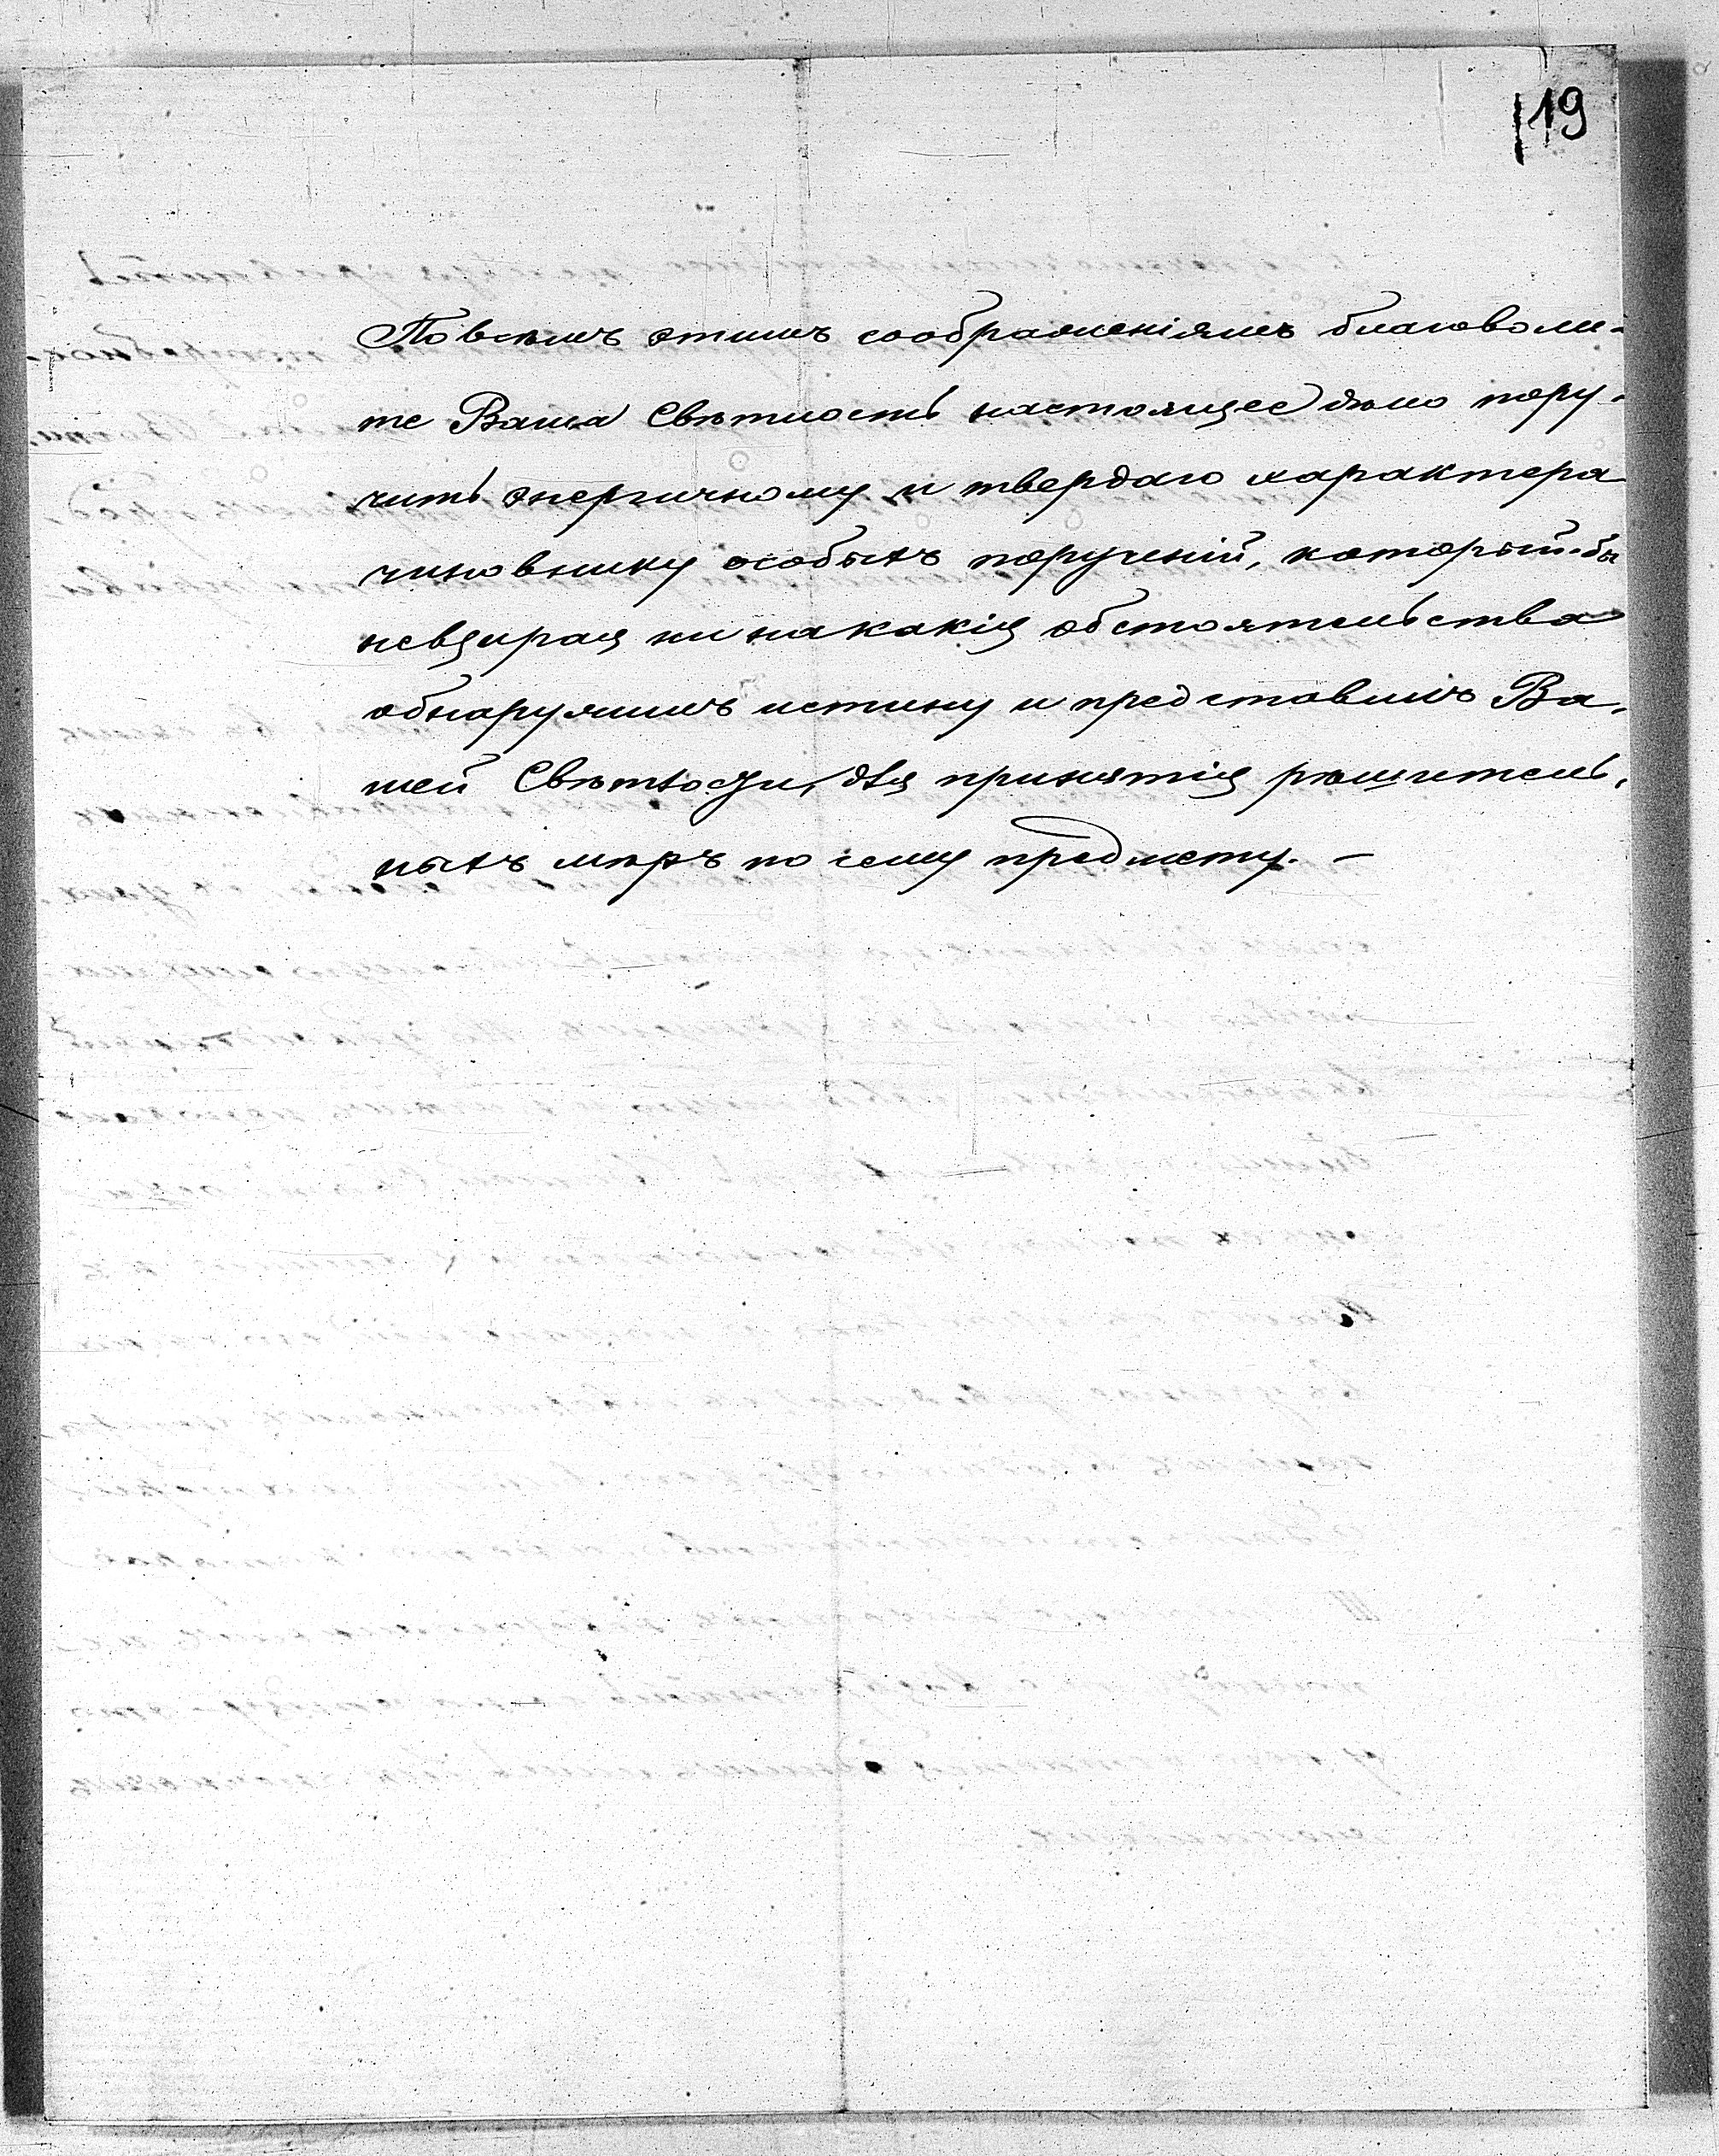 19
По всѣмъ этимъ соображеніямъ благоволи-
те Ваша Свѣтлость настоящее дѣло пору-
чить энергичному и твердаго характера
чиновнику особыхъ порученій, который-бы
невзирая ни на какія обстоятельства
обнаружилъ истину и представилъ Ва-
шей Свѣтлости, для принятія рѣшитель-
ныхъ мѣръ по сему предмету. —